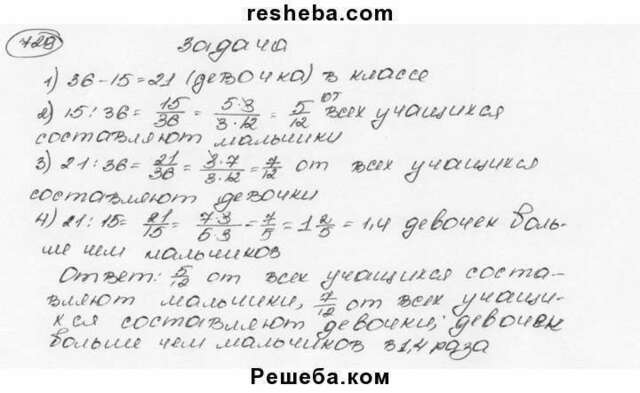 resheba.com
729 Задача
1) 36-15=21 (девочка) в классе
2) 15:36= 15/36 = 5·3/3·12 = 5/12 от всех учащихся
составляют мальчики
3) 21:36= 21/36 = 3·7/3·12 = 7/12 от всех учащихся
составляют девочки
4) 21:15= 21/15 = 7·3/5·3 = 7/5 = 1 2/5 = 1,4 девочек боль-
ше чем мальчиков
Ответ: 5/12 от всех учащихся соста-
вляют мальчики, 7/12 от всех учащи-
хся составляют девочки; девочек
больше чем мальчиков в 1,4 раза
Решеба.ком